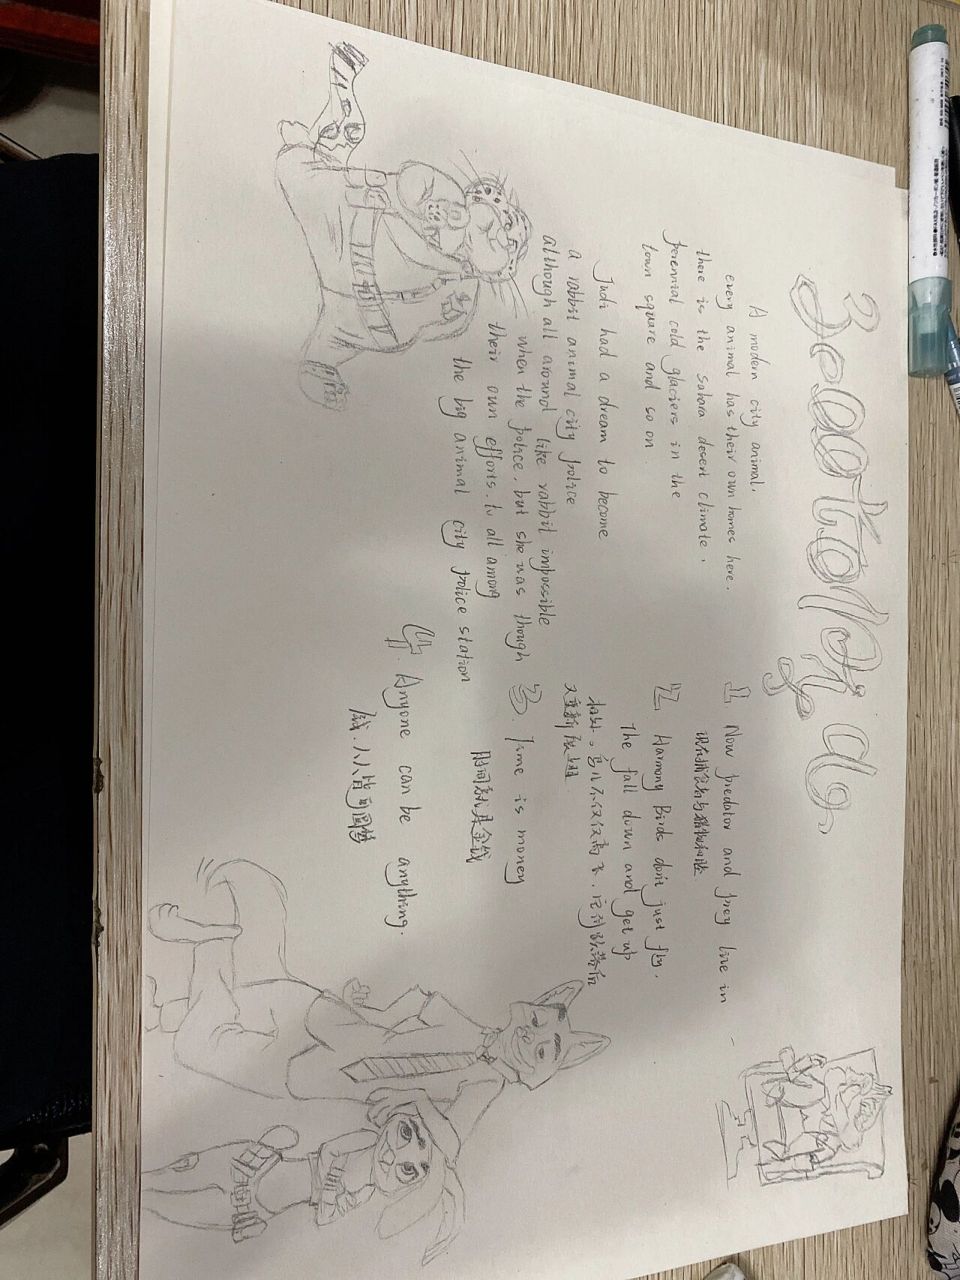 Zootopia
A modern city animal,
every animal has their own homes here.
there is the sahara desert climate,
perennial cold glaciers in the
town square and so on
Judi had a dream to become
a rabbit animal city police
although all around like rabbit impossible
when the police, but she was though
their own efforts. to all among
the big animal city police station
1. Now predator and prey live in
现在捕食者与猎物和谐
2. Harmony Birds don't just fly,
The fall down and get up
鸟儿不仅仅高飞,它们跌落后
又重新
3. Time is money
时间就是金钱
4. Anyone can be anything.
人人皆可